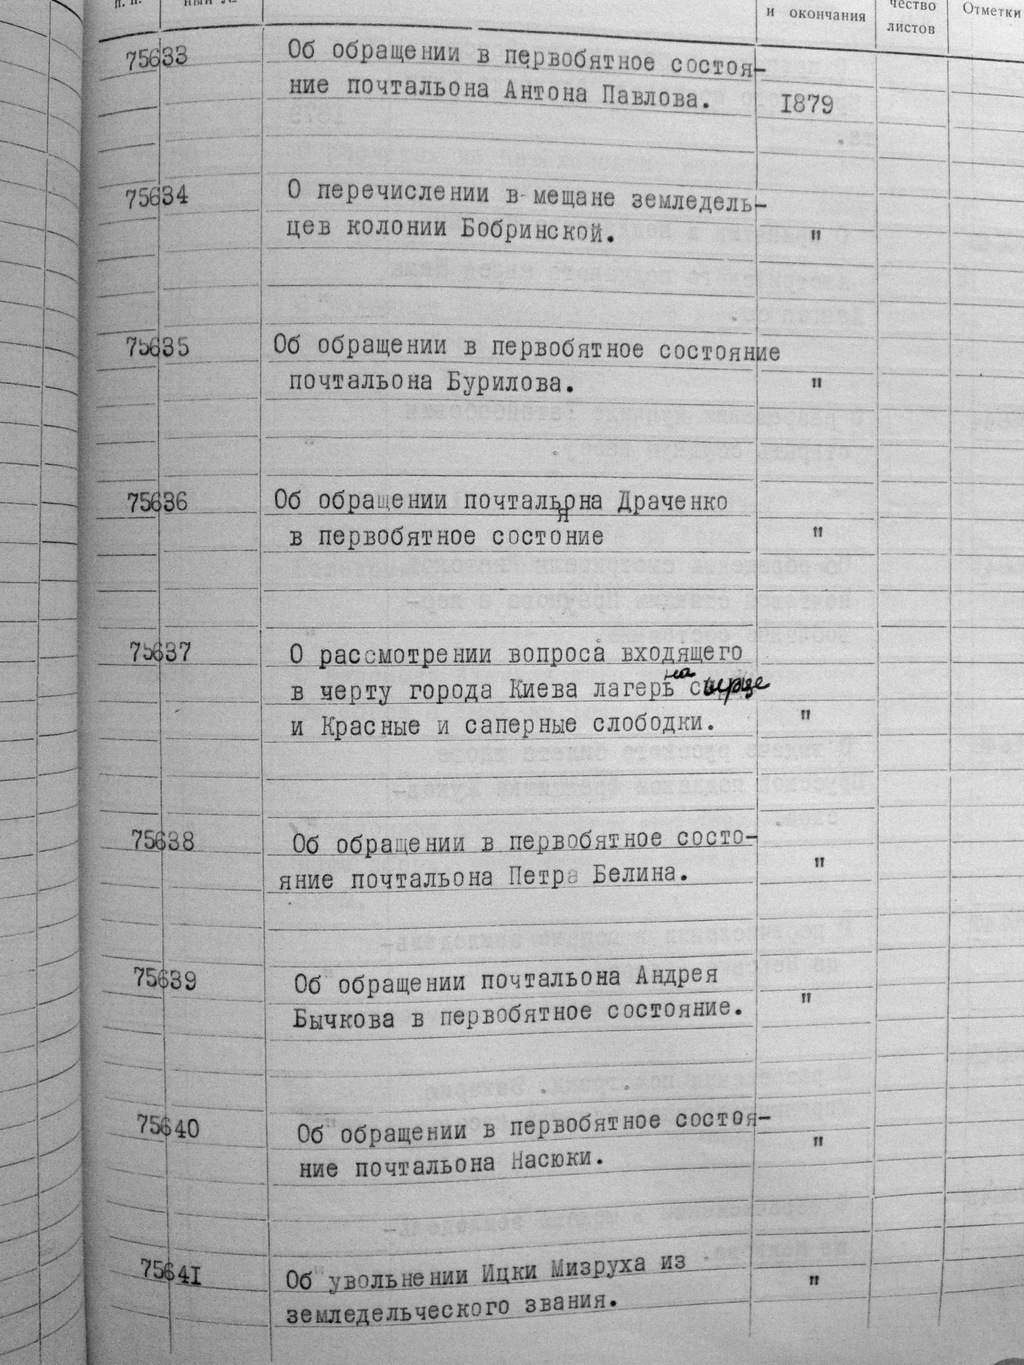 п. п.
ный №
и окончания
чество
листов
Отметки
75633
Об обращении в первобятное состоя-
ние почтальона Антона Павлова.
1879
75634
О перечислении в мещане земледель-
цев колонии Бобринской.
"
75635
Об обращении в первобятное состояние
почтальона Бурилова.
"
75636
Об обращении почтальона Драченко
в первобятное состояние
"
75637
О рассмотрении вопроса входящего
в черту города Киева лагерь на сырце
и Красные и саперные слободки.
"
75638
Об обращении в первобятное состо-
яние почтальона Петра Белина.
"
75639
Об обращении почтальона Андрея
Бычкова в первобятное состояние.
"
75640
Об обращении в первобятное состоя-
ние почтальона Насюки.
"
75641
Об увольнении Ицки Мизруха из
земледельческого звания.
"